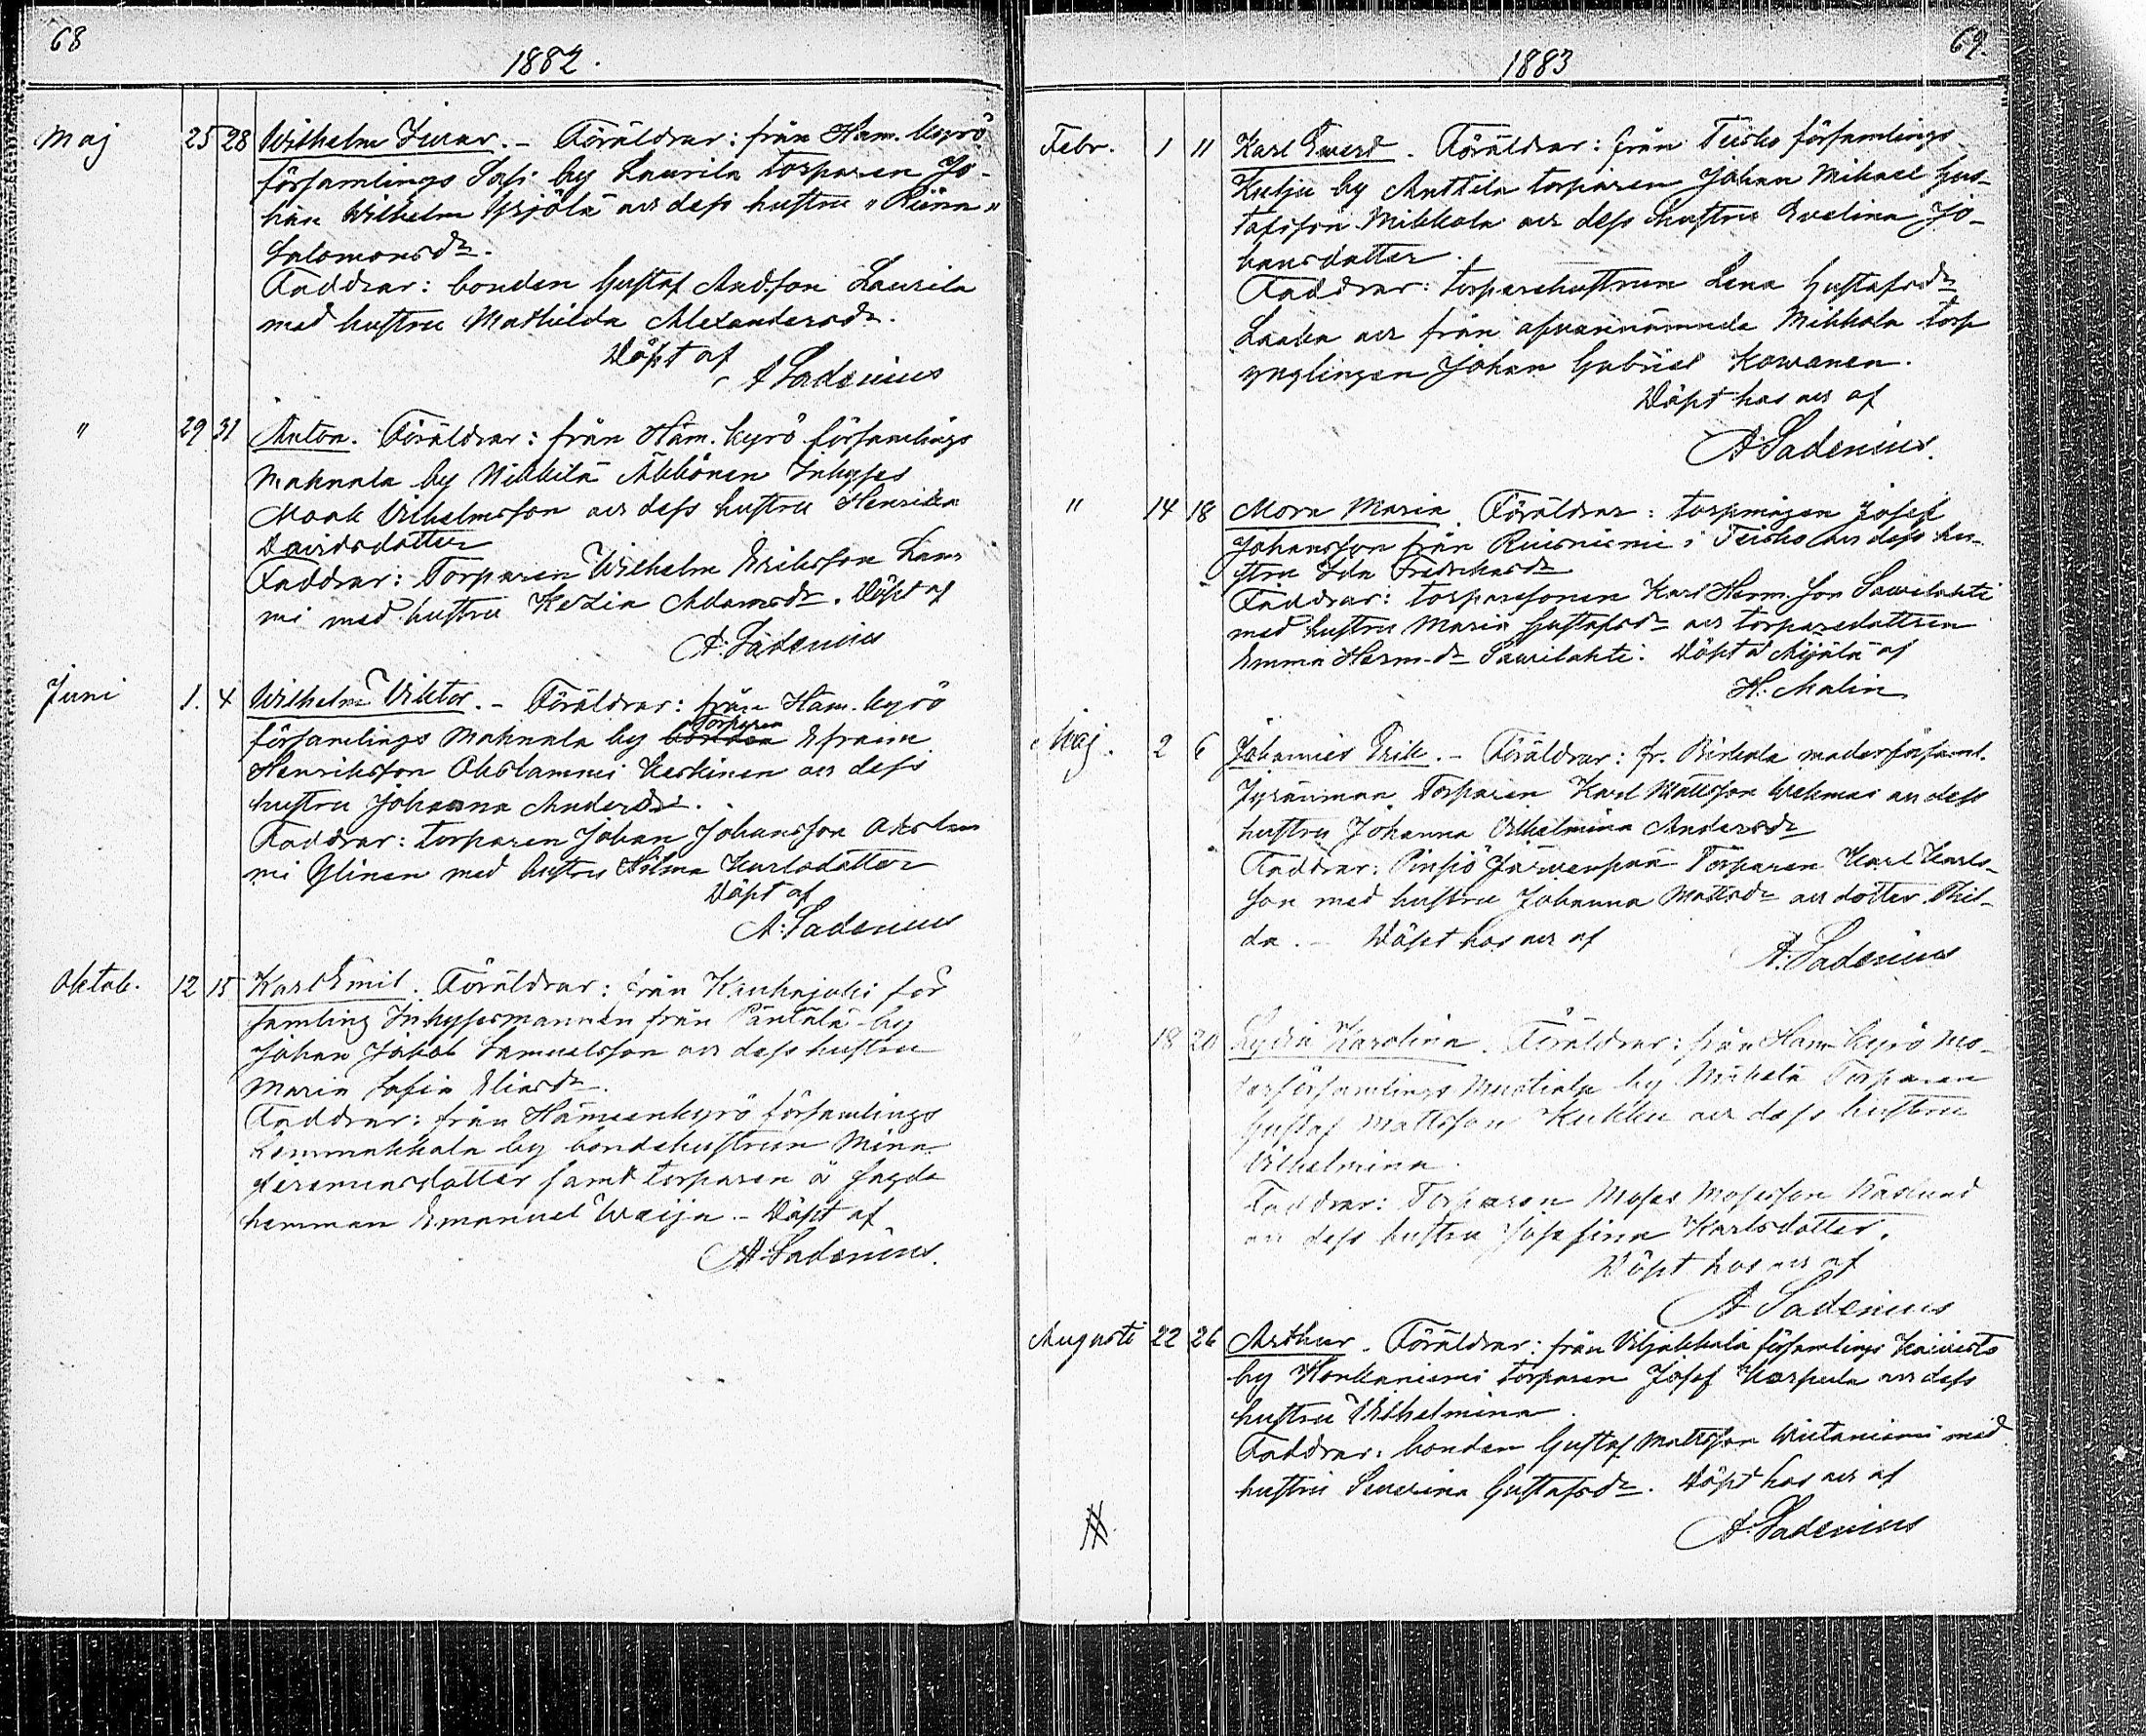 68
1882.
Maj 25 28 Wilhelm Ivar. – Föräldrar: från Ham. kyrö
församlings Sasi by Laurila torparen Jo-
han Wilhelm Yrjölä och dess hustru "Riina"
Salomonsdr.
Faddrar: bonden Gustaf And.son Laurila
med hustru Mathilda Alexandersdr.
Döpt af
A Ladenius
" 29 31 Anton. Föräldrar: från Ham. kyrö församlings
Mahnala by Mikkilä Inhyses
Vilhelmsson och dess hustru Henrika
Davidsdotter
Faddrar: Torparen Wilhelm Eriksson Lam-
mi med hustru Kezia Adamsdr. Döpt af
A. Ladenius
Juni 1. 4 Wilhelm Viktor. – Föräldrar: från Ham. kyrö
församlings Mahnala by bonden torparen Efraim
Henriksson Keskinen och dess
hustru Johanna Andersdr.
Faddrar: torparen Johan Johansson
mi Ylinen med hustru Hilma Karlsdotter
Döpt af
A: Ladenius
Oktob. 12 15 Karl Emil. Föräldrar: från Kauhajoki för
samling Inhysesmannen från Päntälä by
Johan Jakob Samuelsson och dess hustru
Maria Sofia Eliasdr.
Faddrar: från Hämeenkyrö församlings
by bondehustrun Mina
Jeremiasdotter samt torparen å sagde
hemman Emanuel Waija. – Döpt af
A. Ladenius.
69.
1883
Febr. 1 11 Karl Evert. Föräldrar: från Teisko församlings
Kutju by Anttila torparen Johan Mikael Gus-
tafsson Mikkola och dess hustru Evelina Jo-
hansdotter.
Faddrar: torparehustrun Lena Gustafsdr
Laaka och från ofvannämnda Mikkola torp
ynglingen Johan Gabriel Kowanen.
Döpt hos oss af
A Ladenius.
" 14 18 Maria. Föräldrar: torpmågen Josef
Johansson från Ruisniemi i Teisko och dess hu-
stru Ida Fredriksdr
Faddrar: torparesonen Karl Herm. son Sawilahti
med hustru Maria Gustafsdr och torparedottren
Emma Herm.dr Sawilahti. Döpt af
H. Malin
Maj. 2 6 Johannes Erik. – Föräldrar: fr. Birkala moderförsaml.
Torparen Karl Mattsson Wehmas och dess
hustru Johanna Vilhelmina Andersdr
Faddrar: Pinsiö Järvenpää Torparen Karl Karls-
son med hustru Johanna Mattsdr och dotter Thil-
da. – Döpt hos oss af
A. Ladenius
" 18 20 Lydia Karolina. Föräldrar: från Ham Kyrö mo-
derförsamlings by Mäkelä Torparen
Gustaf Mattsson Kukku och dess hustru
Vilhelmina.
Faddrar: Torparen Moses Mosesson Näslund
och dess hustru Josefina Karlsdotter.
Döpt hos oss af
A Ladenius
Augusti 22 26 Arthur. Föräldrar: från Viljakkala församlings
by Honkaniemi torparen Josef Karpula och dess
hustru Vilhelmina.
Faddrar: bonden Gustaf Mattsson Wiitaniemi med
hustru Severina Gustafsdr. Döpt hos oss af
A. Ladenius